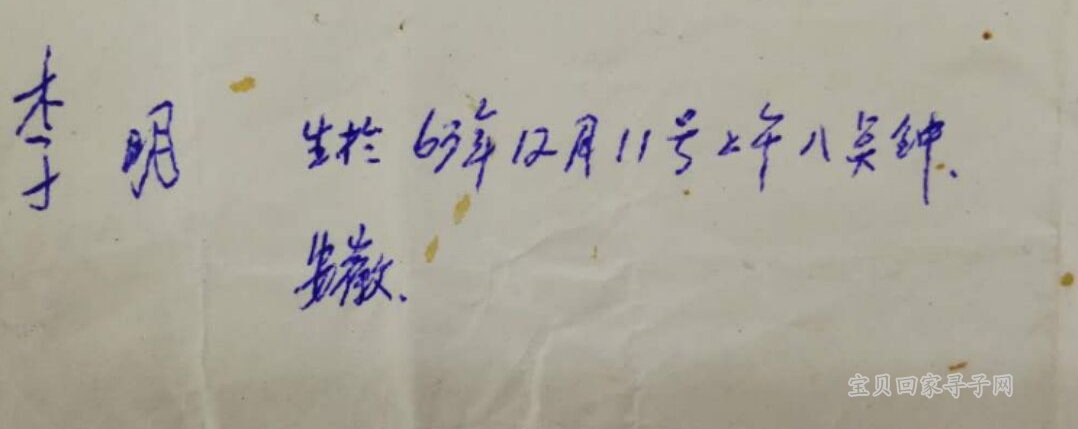 李明 生於63年12月11号上午八点钟、
安徽、
宝贝回家寻子网